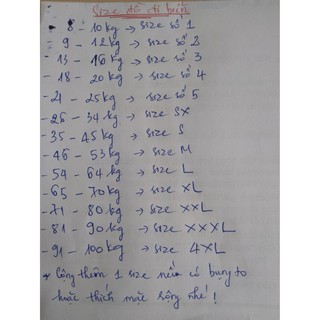 Size đồ đi biển
- 8 - 10kg → size số 1
- 9 - 12kg → size số 2
- 13 - 16kg → size số 3
- 18 - 20kg → size số 4
- 21 - 25kg → size số 5
- 26 - 34kg → size SX
- 35 - 45kg → size S
- 46 - 53kg → size M
- 54 - 64kg → size L
- 65 - 70kg → size XL
- 71 - 80kg → size XXL
- 81 - 90kg → size XXXL
- 91 - 100kg → size 4XL
* Cộng thêm 1 size nếu có bụng to
hoặc thích mặc rộng nhé !